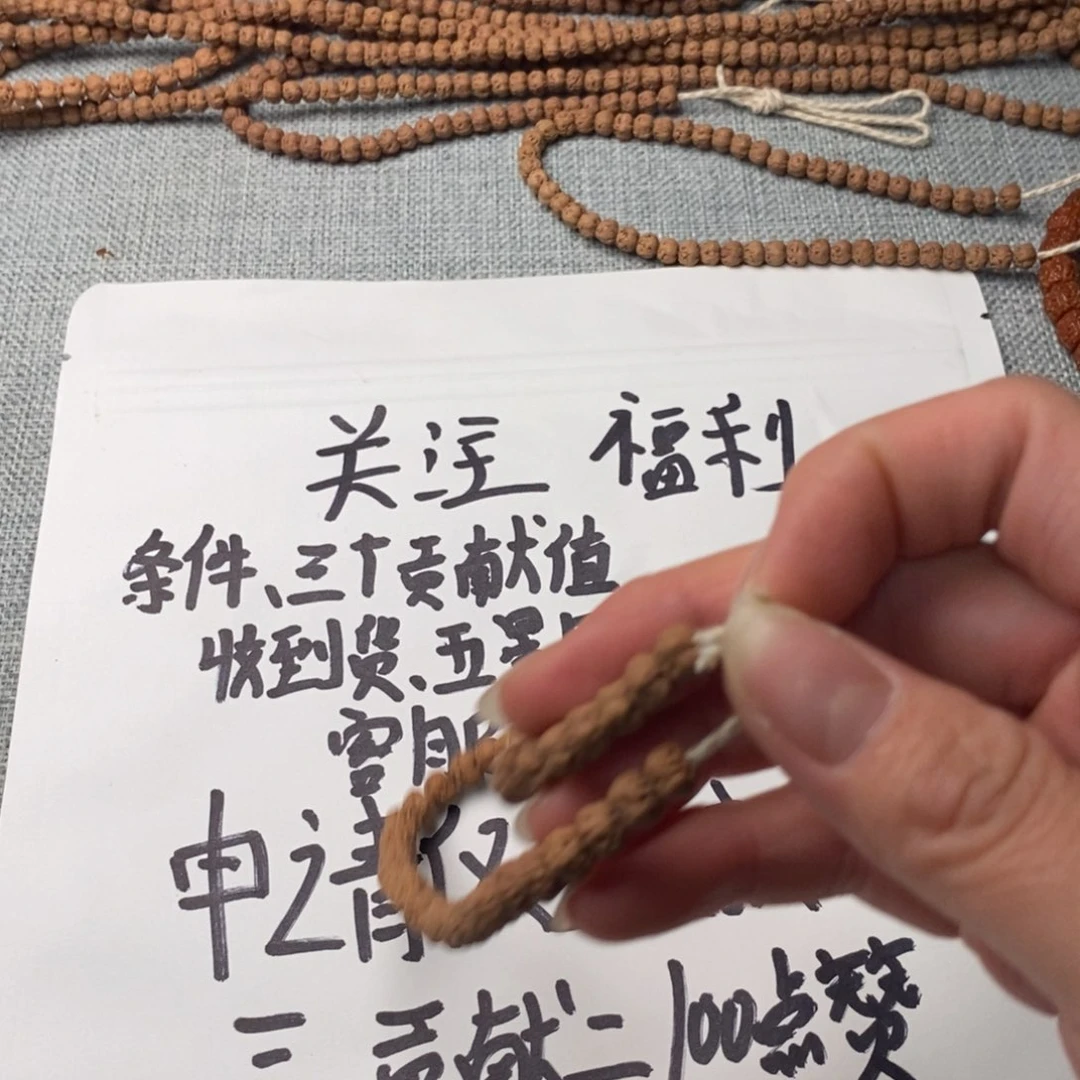 关注 福利
条件、三十贡献值
收到货、五星
客服
申请仅
二 贡献=100点赞